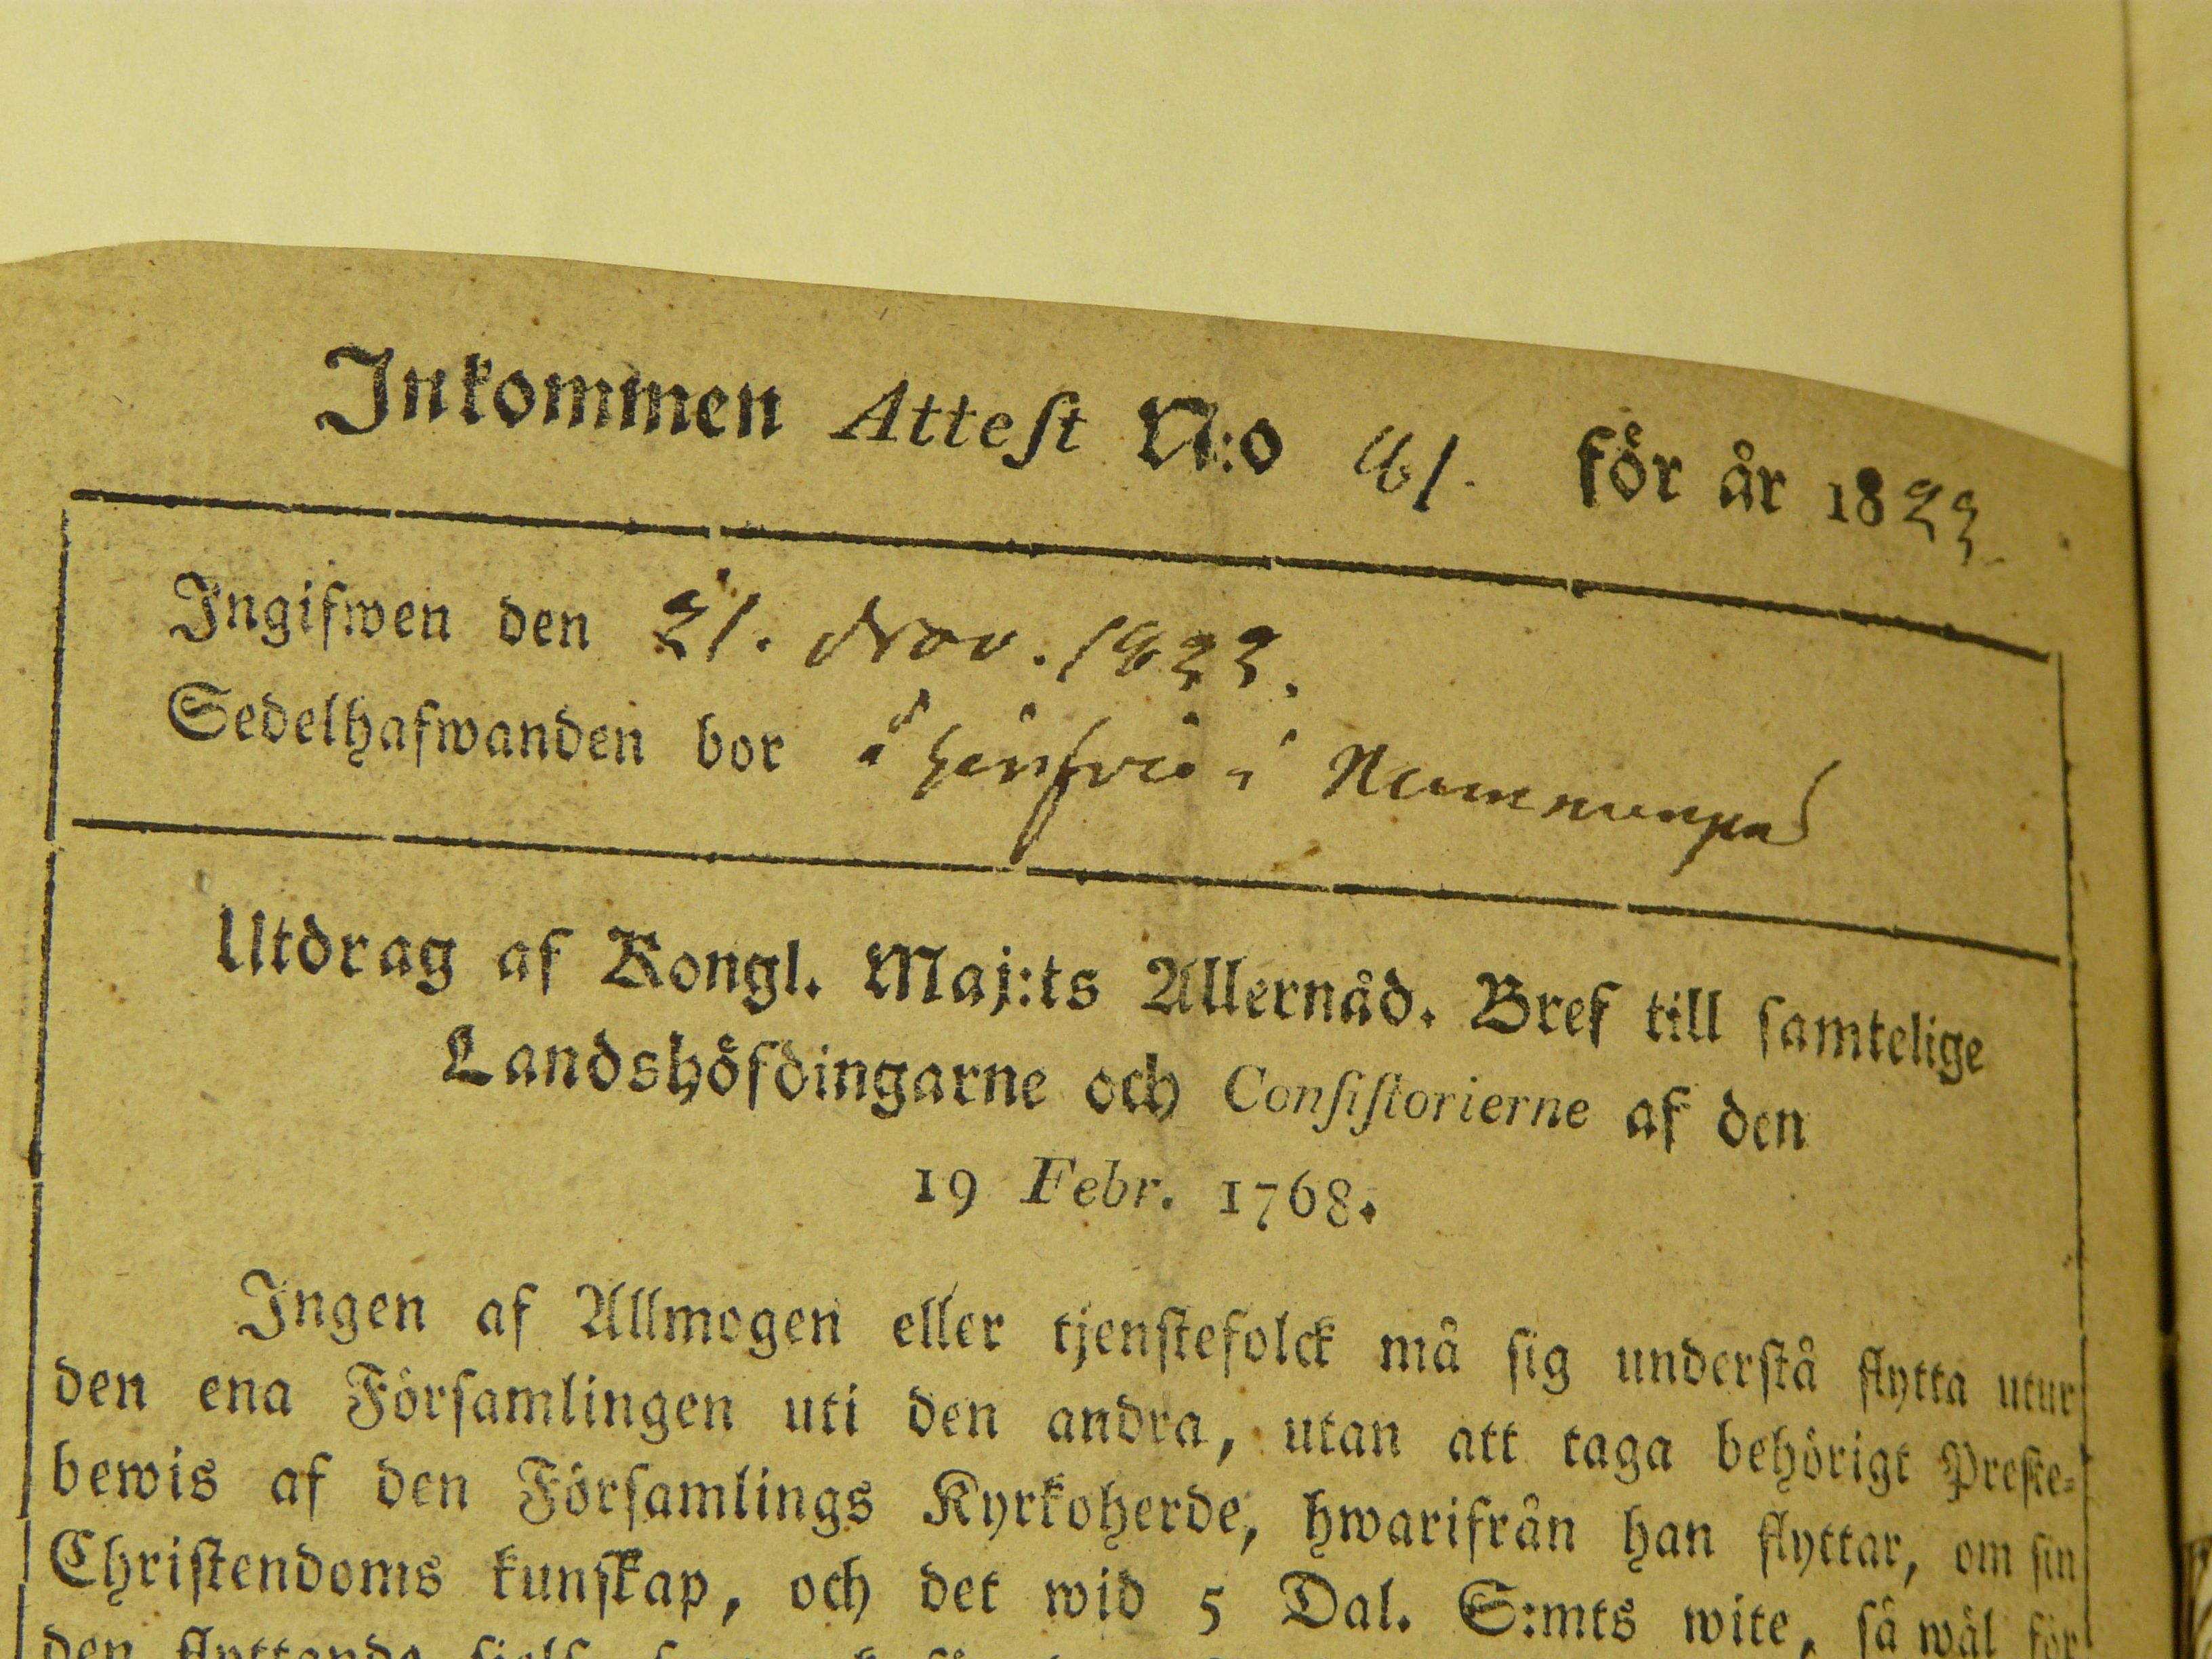 Inkommen Attest N:o 81. för år 1823
Ingifwen den 21. Nov. 1823.
Sedelhafwanden bor å i
Utdrag af Kongl. Maj:ts Allernåd. Bref till samtelige
Landshöfdingarne och Consistorierne af den
19 Febr. 1768.
Ingen af Allmogen eller tjenstefolck må sig understå flytta utur
den ena Församlingen uti den andra, utan att taga behörigt Preste-
bewis af den Församlings Kyrkoherde, hwarifrån han flyttar, om sin
Christendoms kunskap, och det wid 5 Dal. S:mts wite, så wäl för
den flyttande sielf